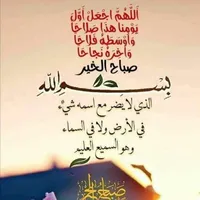 اللَّهُمَّ اجْعَلْ أَوَّلَ
يَوْمِنَا هَذَا صَلَاحًا
وَأَوْسَطَهُ فَلَاحًا
وَآخِرَهُ نَجَاحًا
صباح الخير
بِسْمِ اللهِ
الذي لا يضر مع اسمه شيءٌ
في الأرض ولا في السماء
وهو السميع العليم
صباح الخير